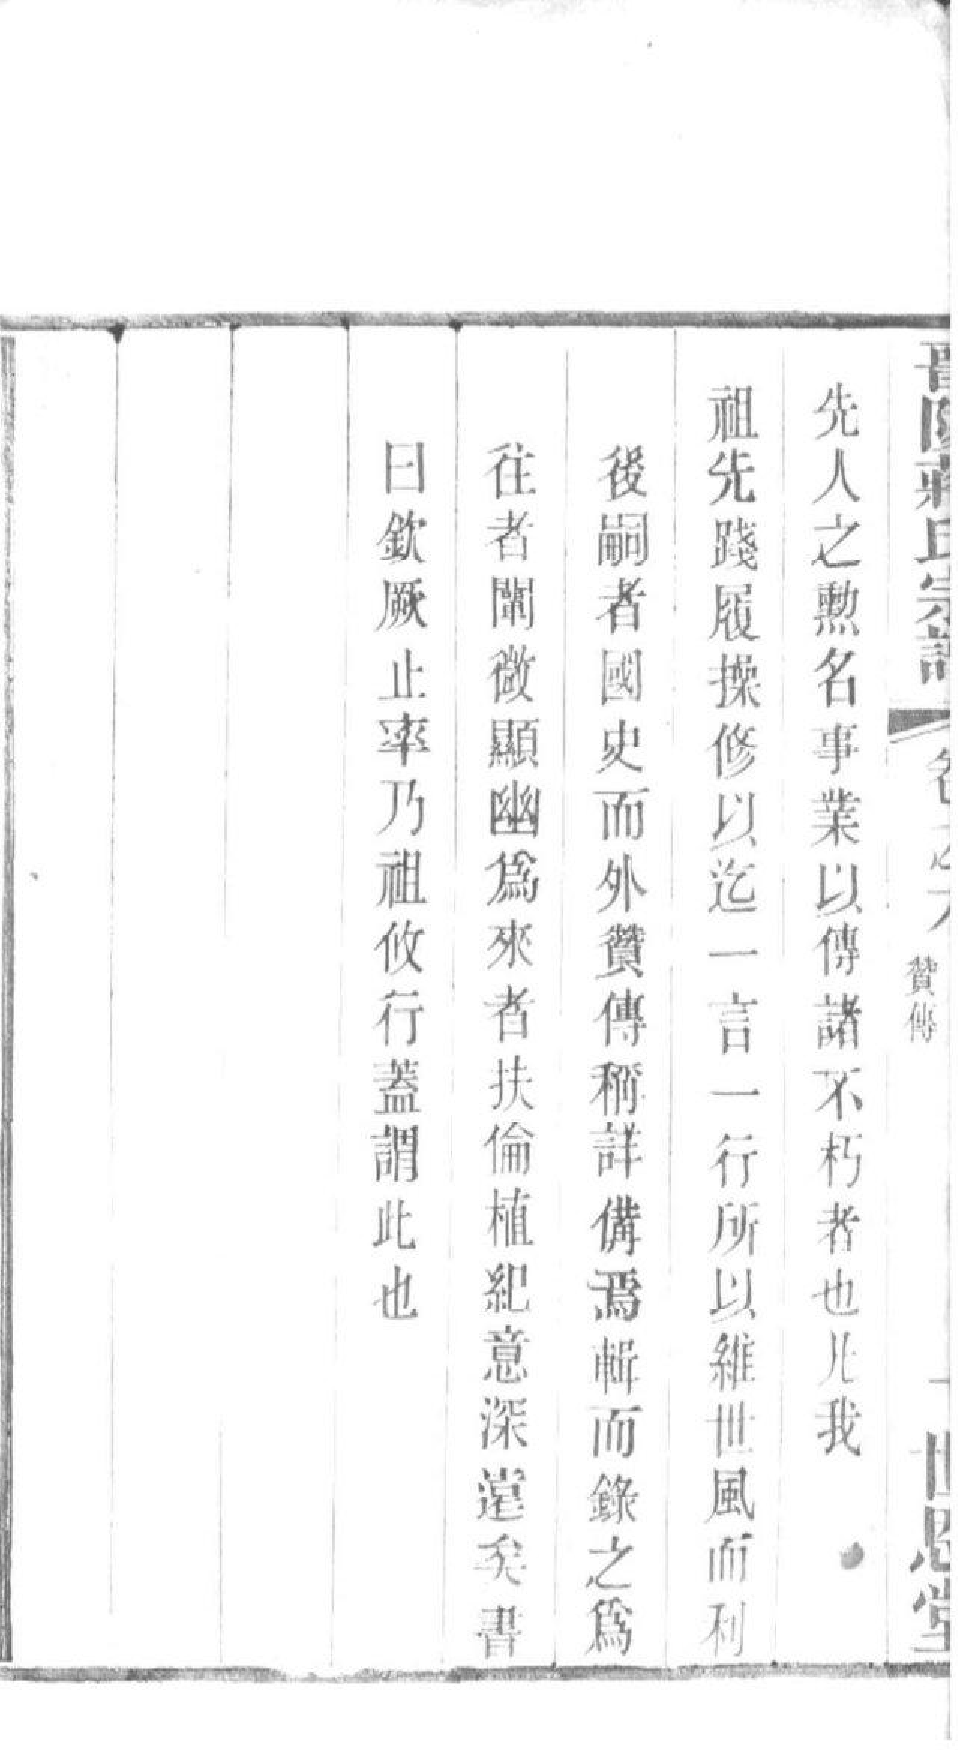 晉陵蔣氏宗譜 卷之六 贊傳 一 世恩堂
先人之勲名事業以傳諸不朽者也凡我
祖先踐履操修以迄一言一行所以維世風而利
後嗣者國史而外贊傳稱詳備焉輯而錄之爲
往者闡微顯幽爲來者扶倫植紀意深遠矣書
曰欽厥止率乃祖攸行蓋謂此也